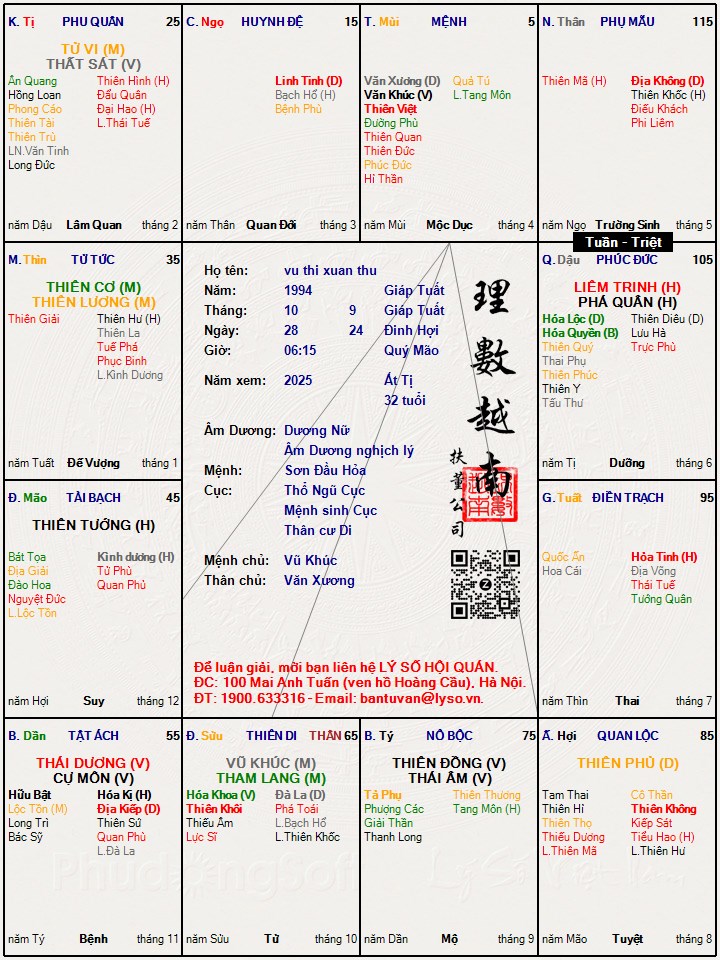 K. Tị PHU QUÂN 25
TỬ VI (M)
THẤT SÁT (V)
Ân Quang Thiên Hình (H)
Hồng Loan Đẩu Quân
Phong Cáo Đại Hao (H)
Thiên Tài L.Thái Tuế
Thiên Trù
LN.Văn Tinh
Long Đức
năm Dậu Lâm Quan tháng 2
C. Ngọ HUYNH ĐỆ 15
Linh Tinh (D)
Bạch Hổ (H)
Bệnh Phù
năm Thân Quan Đới tháng 3
T. Mùi MỆNH 5
Văn Xương (D) Quả Tú
Văn Khúc (V) L.Tang Môn
Thiên Việt
Đường Phù
Thiên Quan
Thiên Đức
Phúc Đức
Hỉ Thần
năm Mùi Mộc Dục tháng 4
N. Thân PHỤ MẪU 115
Thiên Mã (H) Địa Không (D)
Thiên Khốc (H)
Điếu Khách
Phi Liêm
năm Ngọ Trường Sinh tháng 5
Tuần - Triệt
M. Thìn TỬ TỨC 35
THIÊN CƠ (M)
THIÊN LƯƠNG (M)
Thiên Giải Thiên Hư (H)
Thiên La
Tuế Phá
Phục Binh
L.Kình Dương
năm Tuất Đế Vượng tháng 1
Họ tên: vu thi xuan thu
Năm: 1994 Giáp Tuất
Tháng: 10 9 Giáp Tuất
Ngày: 28 24 Đinh Hợi
Giờ: 06:15 Quý Mão
Năm xem: 2025 Ất Tị
32 tuổi
Âm Dương: Dương Nữ
Âm Dương nghịch lý
Mệnh: Sơn Đầu Hỏa
Cục: Thổ Ngũ Cục
Mệnh sinh Cục
Thân cư Di
Mệnh chủ: Vũ Khúc
Thân chủ: Văn Xương
理數越南
扶董公司
Q. Dậu PHÚC ĐỨC 105
LIÊM TRINH (H)
PHÁ QUÂN (H)
Hóa Lộc (D) Thiên Diêu (D)
Hóa Quyền (B) Lưu Hà
Thiên Quý Trực Phù
Thai Phụ
Thiên Phúc
Thiên Y
Tấu Thư
năm Tị Dưỡng tháng 6
Đ. Mão TÀI BẠCH 45
THIÊN TƯỚNG (H)
Bát Tọa Kình dương (H)
Địa Giải Tử Phù
Đào Hoa Quan Phủ
Nguyệt Đức
L.Lộc Tồn
năm Hợi Suy tháng 12
G. Tuất ĐIỀN TRẠCH 95
Quốc Ấn Hỏa Tinh (H)
Hoa Cái Địa Võng
Thái Tuế
Tướng Quân
năm Thìn Thai tháng 7
Để luận giải, mời bạn liên hệ LÝ SỐ HỘI QUÁN.
ĐC: 100 Mai Anh Tuấn (ven hồ Hoàng Cầu), Hà Nội.
ĐT: 1900.633316 - Email: bantuvan@lyso.vn.
B. Dần TẬT ÁCH 55
THÁI DƯƠNG (V)
CỰ MÔN (V)
Hữu Bật Hóa Kị (H)
Lộc Tồn (M) Địa Kiếp (D)
Long Trì Thiên Sứ
Bác Sỹ Quan Phù
L.Đà La
năm Tý Bệnh tháng 11
Đ. Sửu THIÊN DI THÂN 65
VŨ KHÚC (M)
THAM LANG (M)
Hóa Khoa (V) Đà La (D)
Thiên Khôi Phá Toái
Thiếu Âm L.Bạch Hổ
Lực Sĩ L.Thiên Khốc
năm Sửu Tử tháng 10
B. Tý NÔ BỘC 75
THIÊN ĐỒNG (V)
THÁI ÂM (V)
Tả Phụ Thiên Thương
Phượng Các Tang Môn (H)
Giải Thần
Thanh Long
năm Dần Mộ tháng 9
Ấ. Hợi QUAN LỘC 85
THIÊN PHỦ (D)
Tam Thai Cô Thần
Thiên Hỉ Thiên Không
Thiên Thọ Kiếp Sát
Thiếu Dương Tiểu Hao (H)
L.Thiên Mã L.Thiên Hư
năm Mão Tuyệt tháng 8